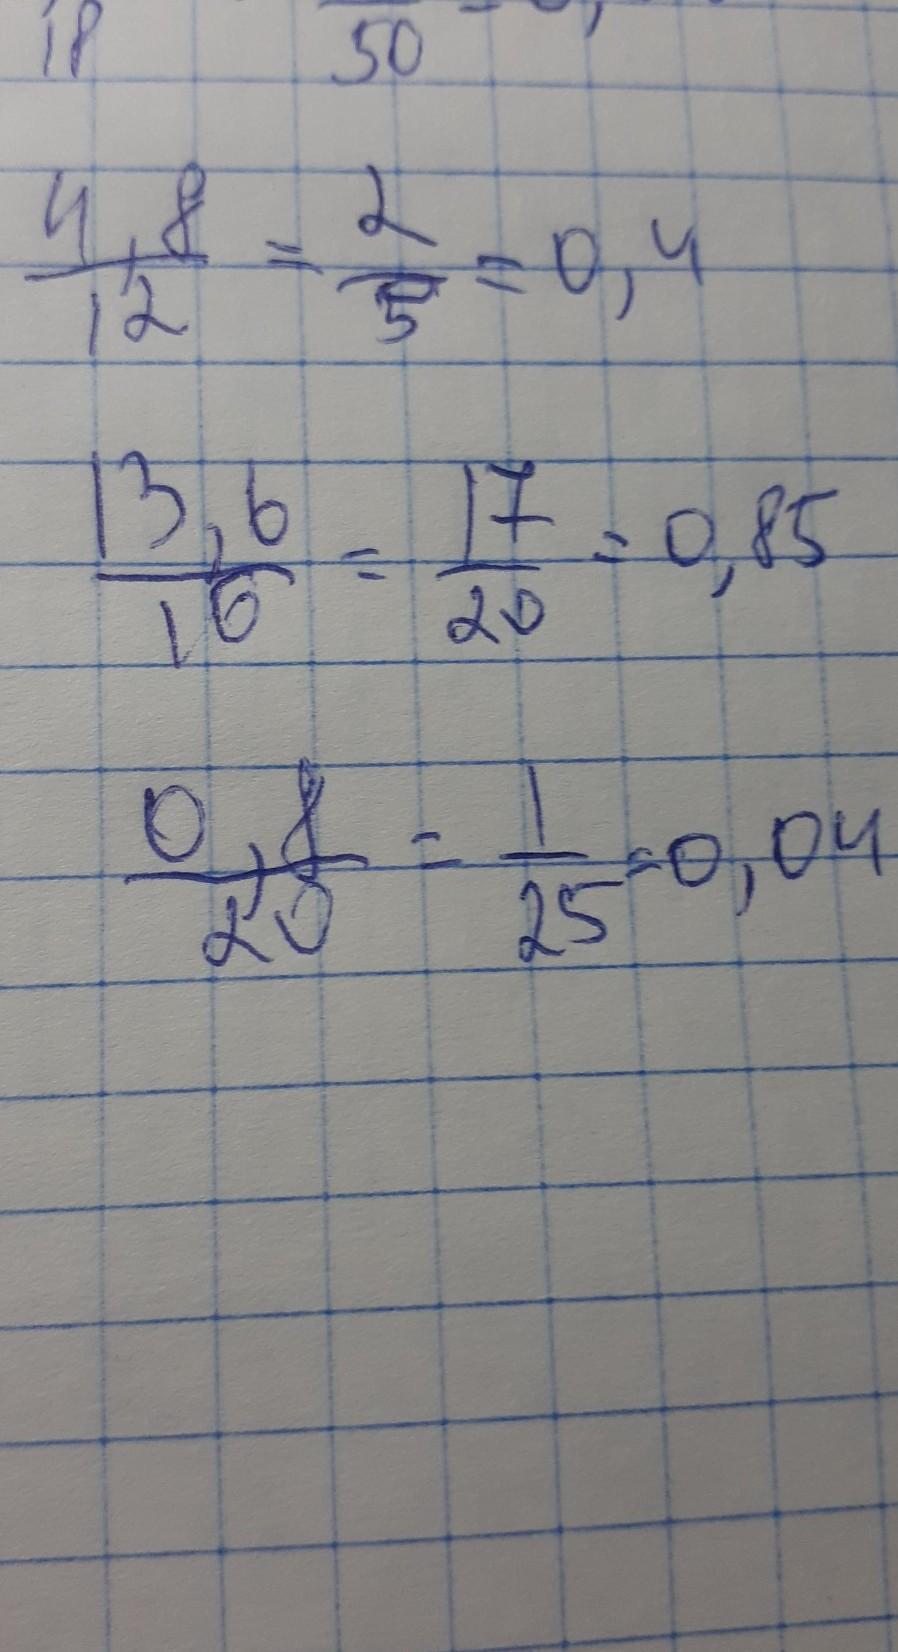 18 50
4,8/12 = 2/5 = 0,4
13,6/16 = 17/20 = 0,85
0,8/20 = 1/25 = 0,04